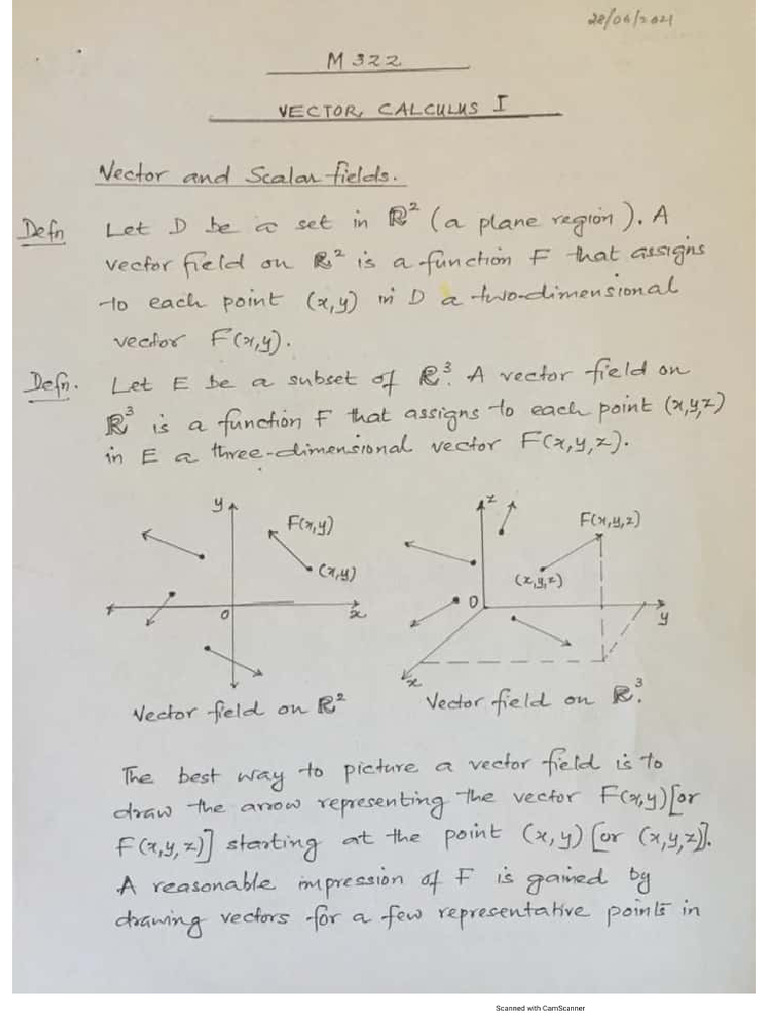 28/06/2021
M 322
VECTOR CALCULUS I
Vector and Scalar fields.
Defn Let D be a set in ℝ² (a plane region). A
vector field on ℝ² is a function F that assigns
to each point (x,y) in D a two-dimensional
vector F(x,y).
Defn. Let E be a subset of ℝ³. A vector field on
ℝ³ is a function F that assigns to each point (x,y,z)
in E a three-dimensional vector F(x,y,z).
y
F(x,y)
(x,y)
O
x
Vector field on ℝ²
z
F(x,y,z)
(x,y,z)
O
y
x
Vector field on ℝ³.
The best way to picture a vector field is to
draw the arrow representing the vector F(x,y) [or
F(x,y,z)] starting at the point (x,y) [or (x,y,z)].
A reasonable impression of F is gained by
drawing vectors for a few representative points in
Scanned with CamScanner